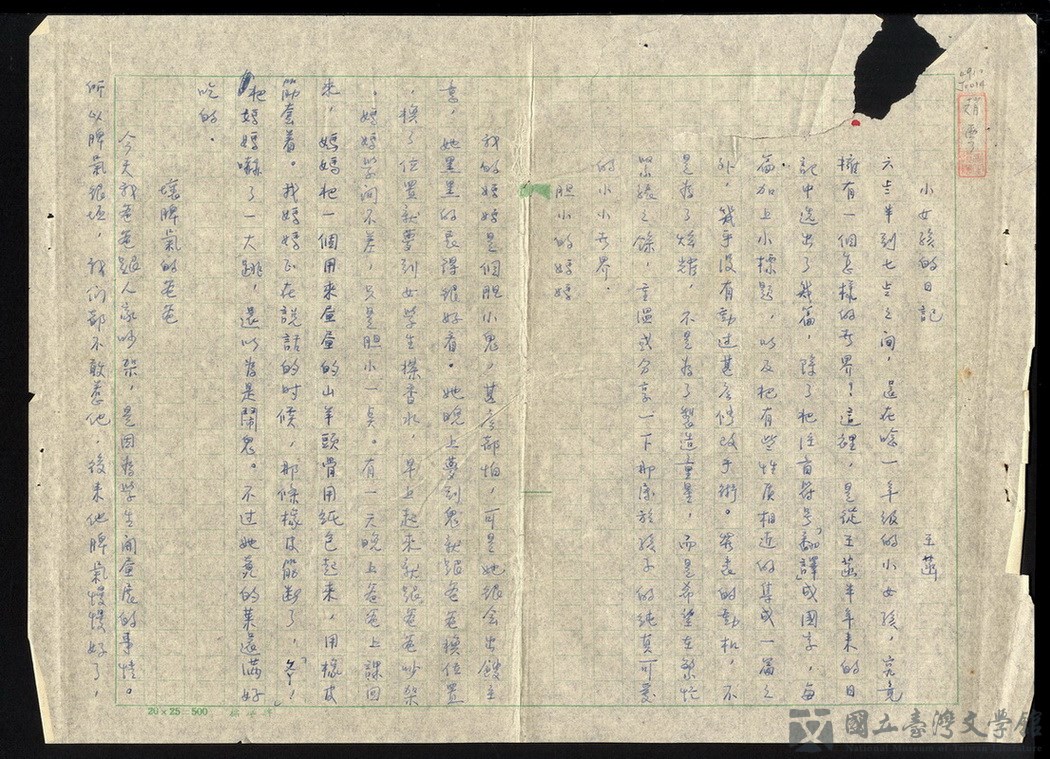 小女孩的日記
王茁
六歲半到七歲之間，還在唸一年級的小女孩，究竟
擁有一個怎樣的世界！這裡，是從王茁半年來的日
記中選出了幾篇，除了把注音符號「翻譯」成國字，每
篇加上小標題，以及把有些性質相近的集成一篇之
外，幾乎沒有動過甚麼修改手術。發表的動机，不
是為了炫耀，不是為了製造童星，而是希望在繁忙
緊張之餘，重溫或分享一下那屬於孩子的純真可愛
的小小世界．
胆小的媽媽
我的媽媽是個胆小鬼，甚麼都怕，可是她很会出餿主
意，她黑黑的長得很好看。她晚上夢到鬼就跟爸爸換位置
，換了位置就夢到女學生搽香水，早上起來就跟爸爸吵架
．媽媽學問不差，只是胆小一点。有一天晚上爸爸上課回
來，媽媽把一個用來屋屋的山羊頭骨用紙包起來，用橡皮
筋套着。我媽媽正在說話的时候，那條橡皮筋断了，「冬」，
把媽媽嚇了一大跳，還以為是鬧鬼。不过她煮的菜還满好
吃的．
壞脾氣的爸爸
今天我爸爸跟人家吵架，是因為學生開画展的事情。
所以脾氣很坏，我們都不敢惹他，後来他脾氣慢慢好了，
20×25＝500
國立臺灣文學館
National Museum of Taiwan Literature